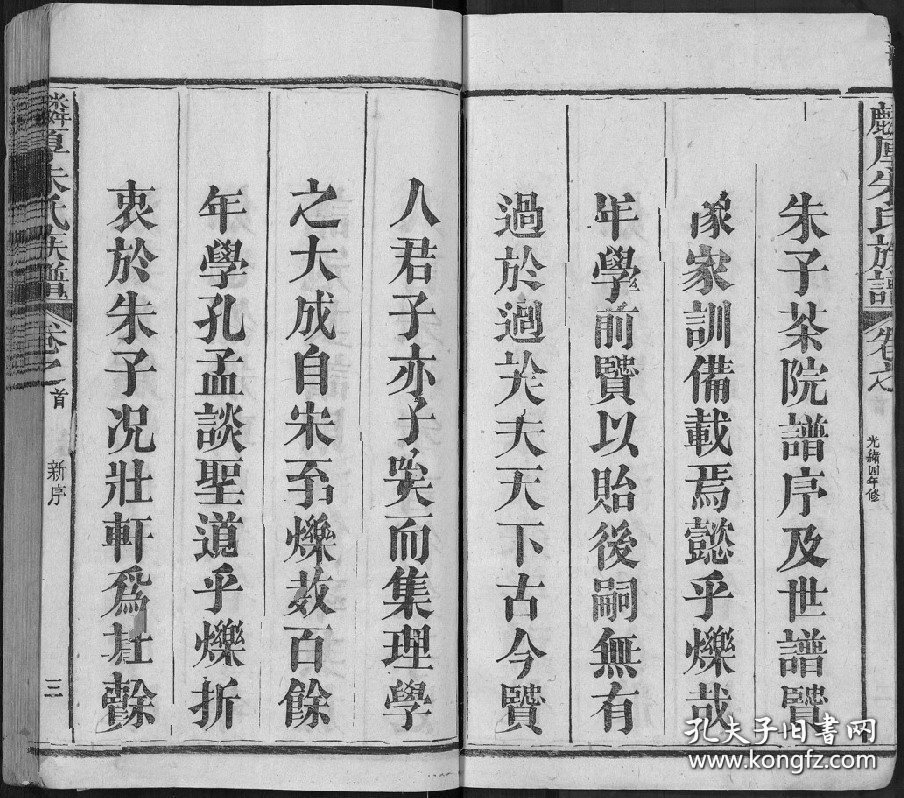 麟厚朱氏族譜
卷之首
光緒四年修
朱子茶院譜序及世譜賢
像家訓備載焉懿乎爍哉
年學前賢以貽後嗣無有
過於過於夫天下古今賢
人君子亦子矣而集理學
之大成自宋至爍数百餘
年學孔孟談聖道乎爍折
衷於朱子况壯軒爲
麟厚朱氏族譜
卷之首
新序
三
孔夫子旧书网
www.kongfz.com